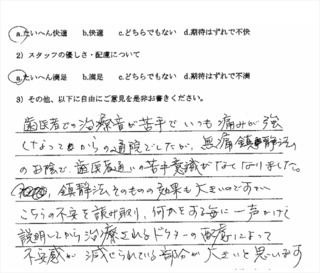 a.たいへん快適 b.快適 c.どちらでもない d.期待はずれで不快
2）スタッフの優しさ・配慮について
a.たいへん満足 b.満足 c.どちらでもない d.期待はずれで不満
3）その他、以下に自由にご意見を是非お書きください。
歯医者での治療音が苦手でいつも痛みが強
くなってからの通院でしたが、無痛鎮静法
のお陰で、歯医者通いの苦手意識がなくなりました。
鎮静法そのものの効果も大きいのですが
こちらの不安を読み取り、何かをする毎に一声かけて
説明してから治療されるドクターの配慮によって
不安感が減じられている部分が大きいと思います